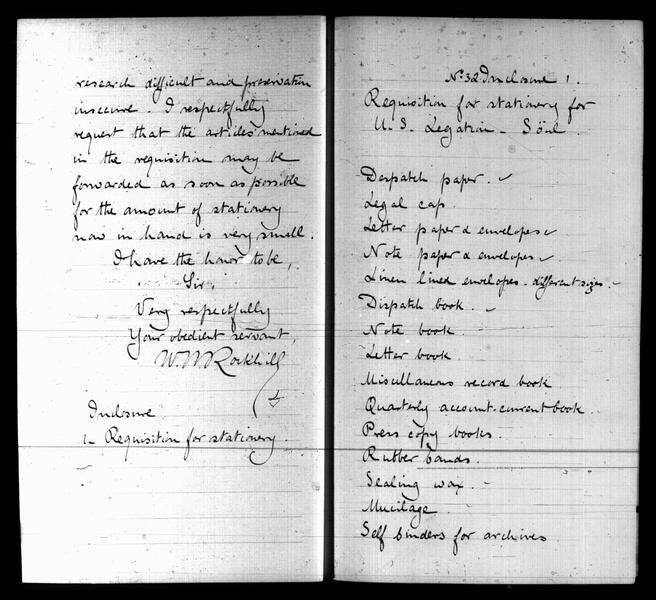 research difficult and preservation
insecure. I respectfully
request that the articles mentioned
in the requisition may be
forwarded as soon as possible
for the amount of stationery
now in hand is very small.
I have the honor to be,
Sir,
Very respectfully
Your obedient servant,
W. W. Rockhill
Inclosure
1- Requisition for stationery.
No. 32. Inclosure 1.
Requisition for stationery for
U. S. Legation - Söul
Despatch paper. ✓
Legal cap.
Letter paper & envelopes ✓
Note paper & envelopes ✓
Linen lined envelopes - different sizes -
Dispatch book. -
Note book.
Letter book.
Miscellaneous record book
Quarterly account-current book
Press copy books.
Rubber bands.
Sealing wax. -
Mucilage
Self binders for archives